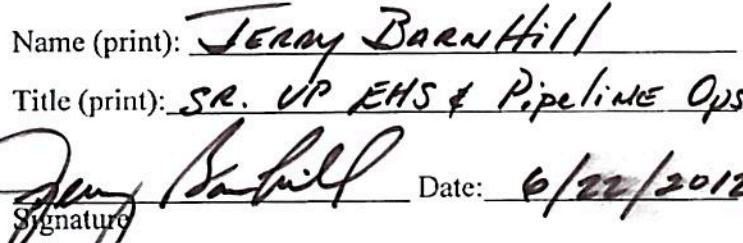 Name (print): Jerry Barnhill
Title (print): SR. VP EHS & Pipeline Ops
Jerry Barnhill Date: 6/22/2012
Signature